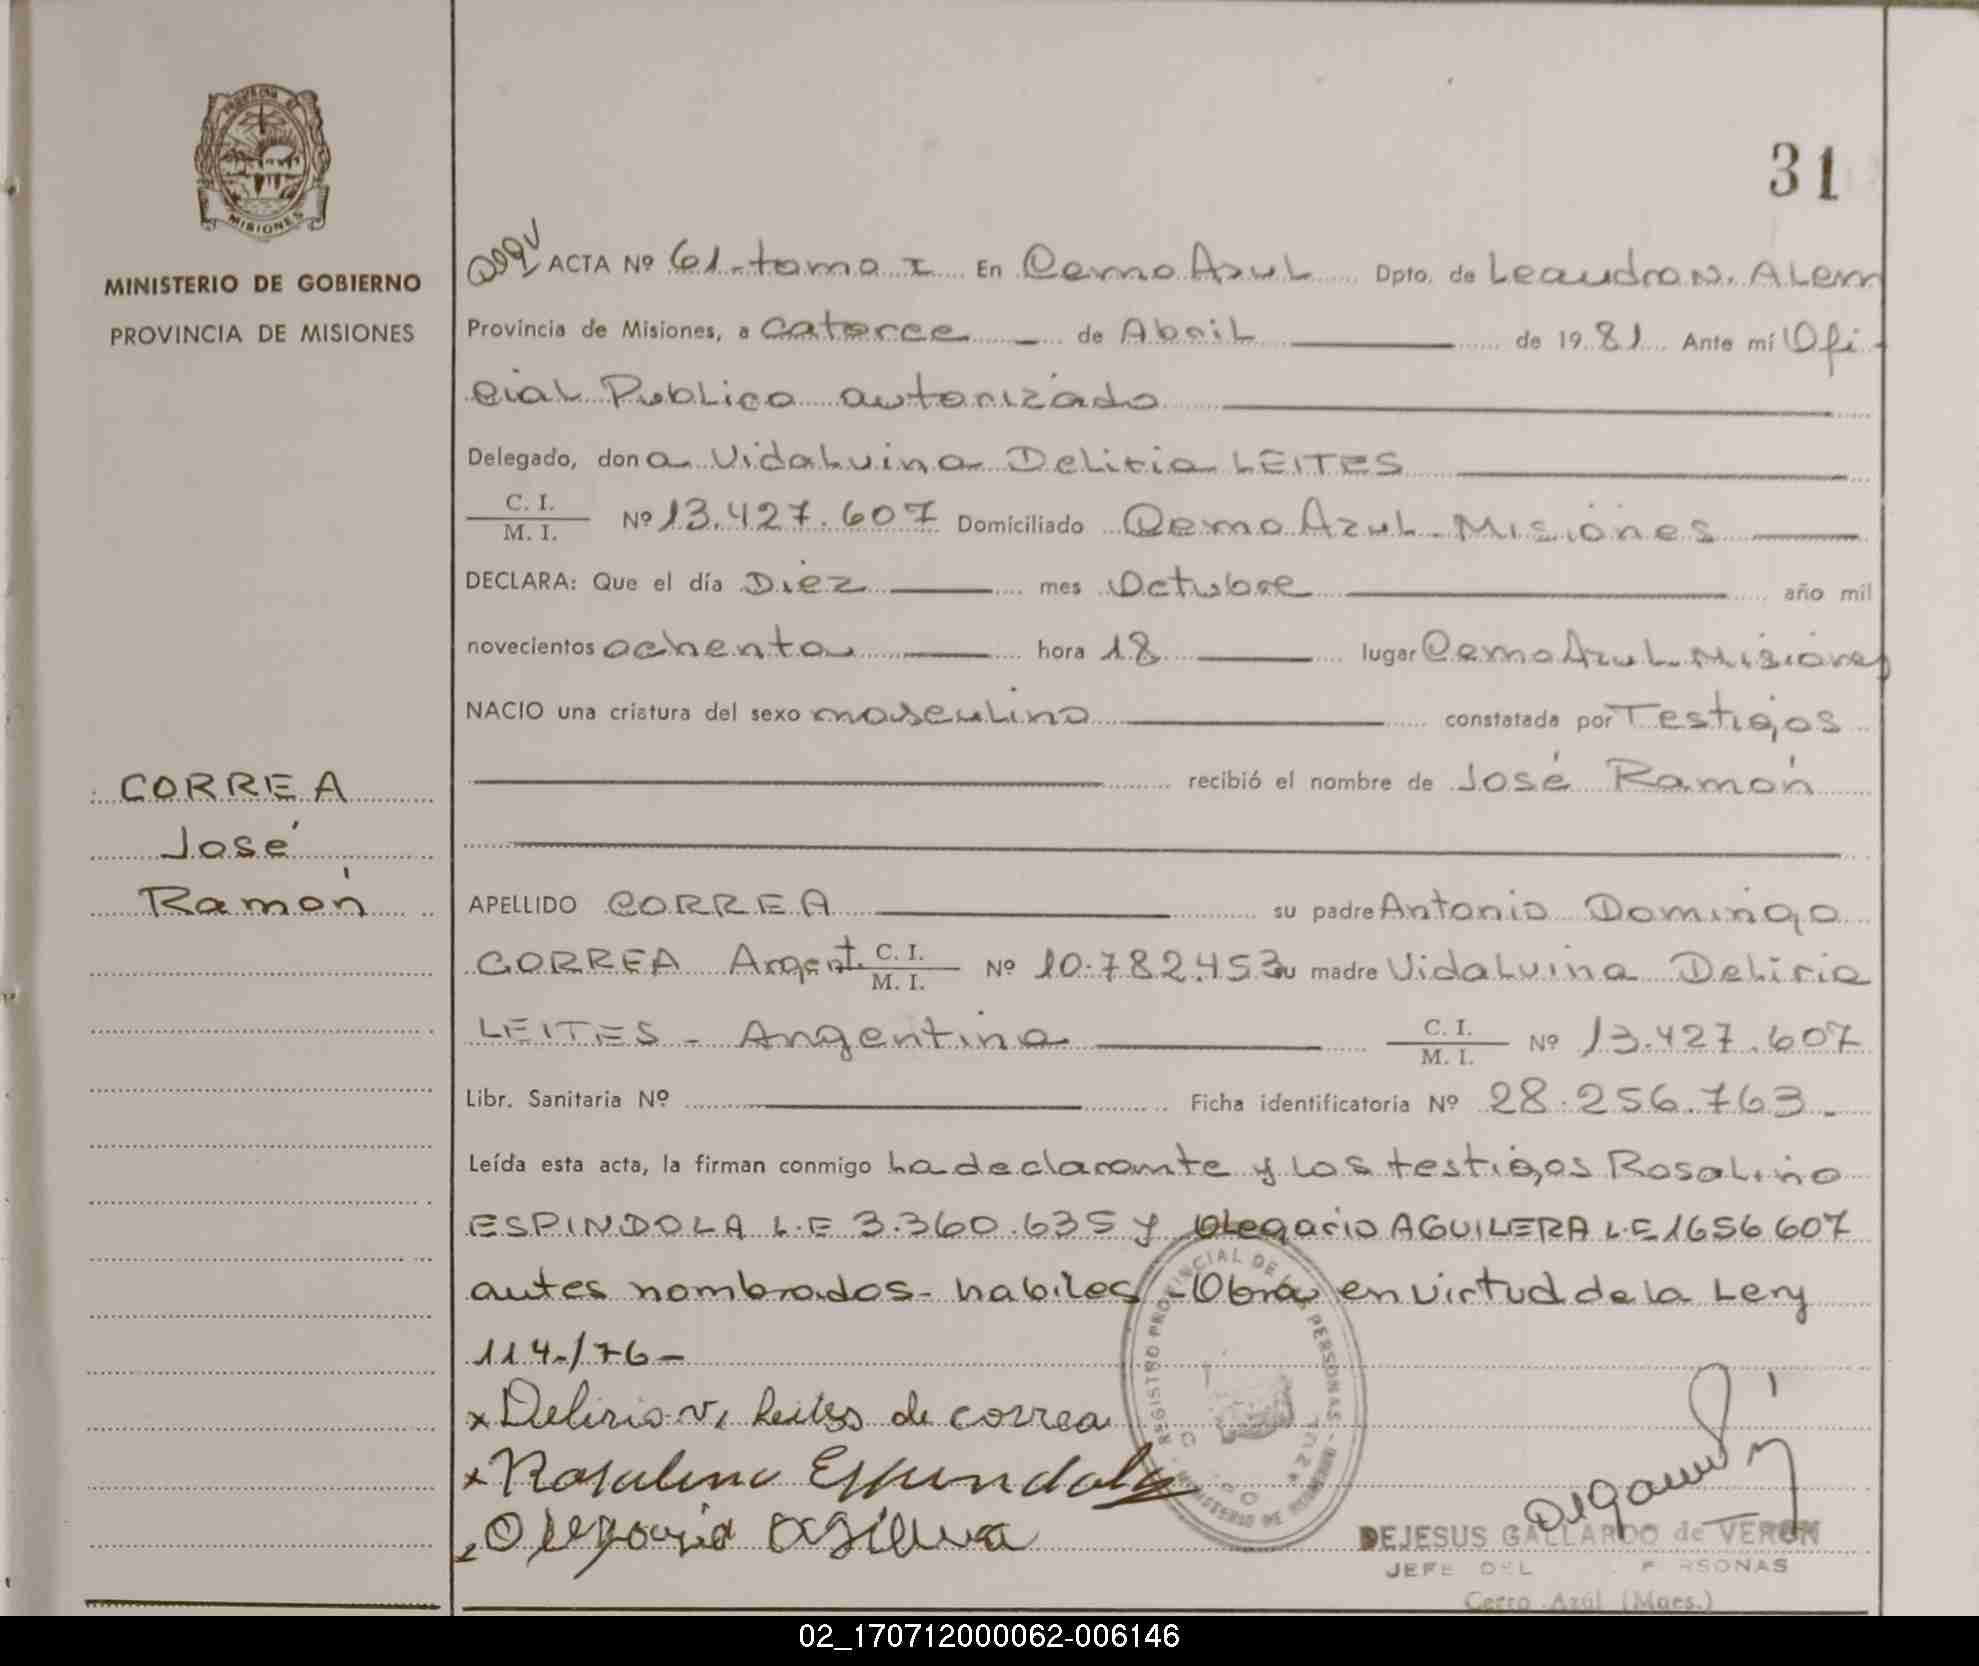 PROVINCIA DE
MISIONES
MINISTERIO DE GOBIERNO
PROVINCIA DE MISIONES
CORREA
José
Ramón
31
ACTA Nº 61-tomo I En Cerro Azul Dpto. de Leandro N. Alem
Provincia de Misiones, a Catorce de Abril de 1981 Ante mí Ofi-
cial Publico autorizado
Delegado, dona Vidaluina Deliria LEITES
C. I.
M. I. Nº 13.427.607 Domiciliado Cerro Azul-Misiones
DECLARA: Que el día Diez mes Octubre año mil
novecientos ochenta hora 18 lugar Cerro Azul-Misiones
NACIO una criatura del sexo masculino constatada por Testigos
recibió el nombre de José Ramón
APELLIDO CORREA su padre Antonio Domingo
CORREA Argent. C. I.
M. I. Nº 10.782.453 su madre Vidaluina Deliria
LEITES - Argentina C. I.
M. I. Nº 13.427.607
Libr. Sanitaria Nº Ficha identificatoria Nº 28.256.763.-
Leída esta acta, la firman conmigo la declarante y los testigos Rosalino
ESPINDOLA L.E 3.360.635 y Olegario AGUILERA L.E 1656607
antes nombrados- habiles - Obra en virtud de la Ley
114-/76-
x Deliria v. Leites de correa
x Rosalino Espindola
REGISTRO PROVINCIAL DE LAS PERSONAS - MINISTERIO DE GOBIERNO
AZUL
DEJESUS GALLARDO de VERON
JEFE DEL PERSONAS
Cerro Azúl (Mnes.)
02_170712000062-006146